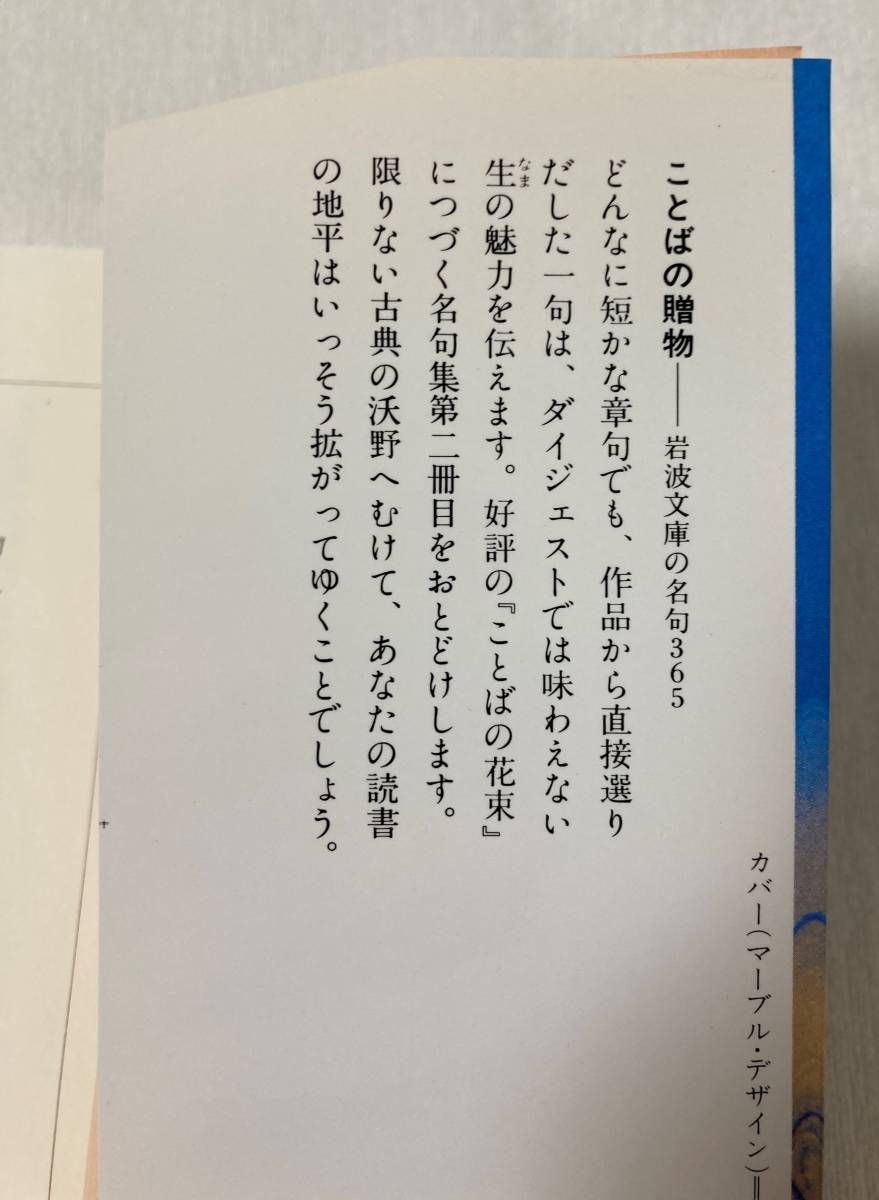 カバー(マーブル・デザイン)=
ことばの贈物──岩波文庫の名句365
どんなに短かな章句でも、作品から直接選り
だした一句は、ダイジェストでは味わえない
生の魅力を伝えます。好評の『ことばの花束』
なま
につづく名句集第二冊目をおとどけします。
限りない古典の沃野へむけて、あなたの読書
の地平はいっそう拡がってゆくことでしょう。